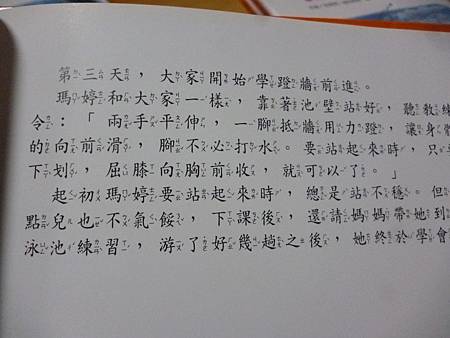 第三天，大家開始學蹬牆前進。
瑪婷和大家一樣，靠著池壁站好，聽教練
令：「兩手平伸，一腳抵牆用力蹬，讓身體
的向前滑，腳不必打水。要站起來時，只
下划，屈膝向胸前收，就可以了。」
起初瑪婷要站起來時，總是站不穩。但
點兒也不氣餒，下課後，還請媽媽帶她到
泳池練習，游了好幾趟之後，她終於學會